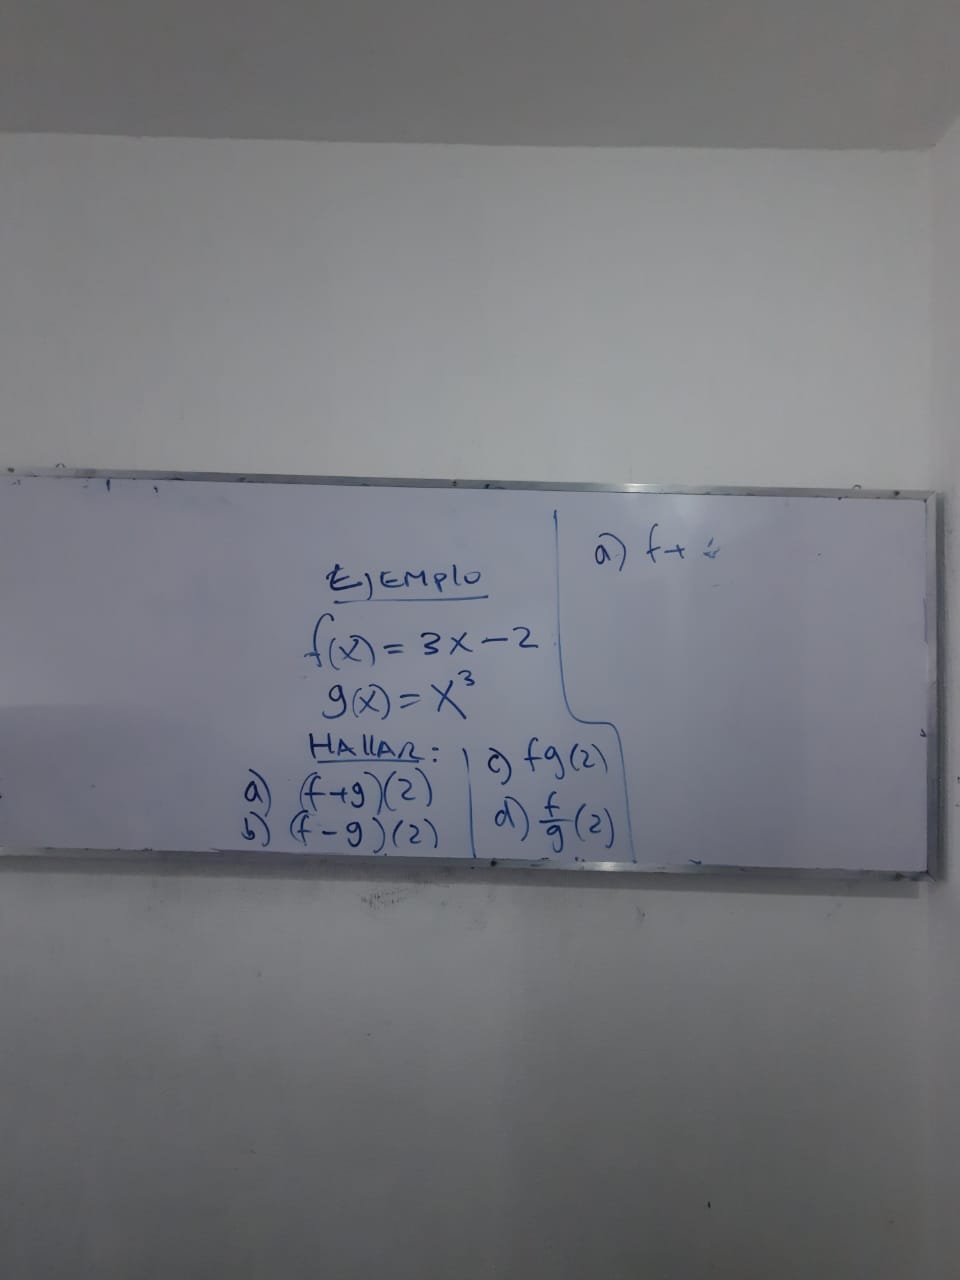 EJEMPLO
f(x) = 3x - 2
g(x) = x³
HALLAR:
a) (f+g)(2)
b) (f-g)(2)
c) fg(2)
d) f/g (2)
a) f+